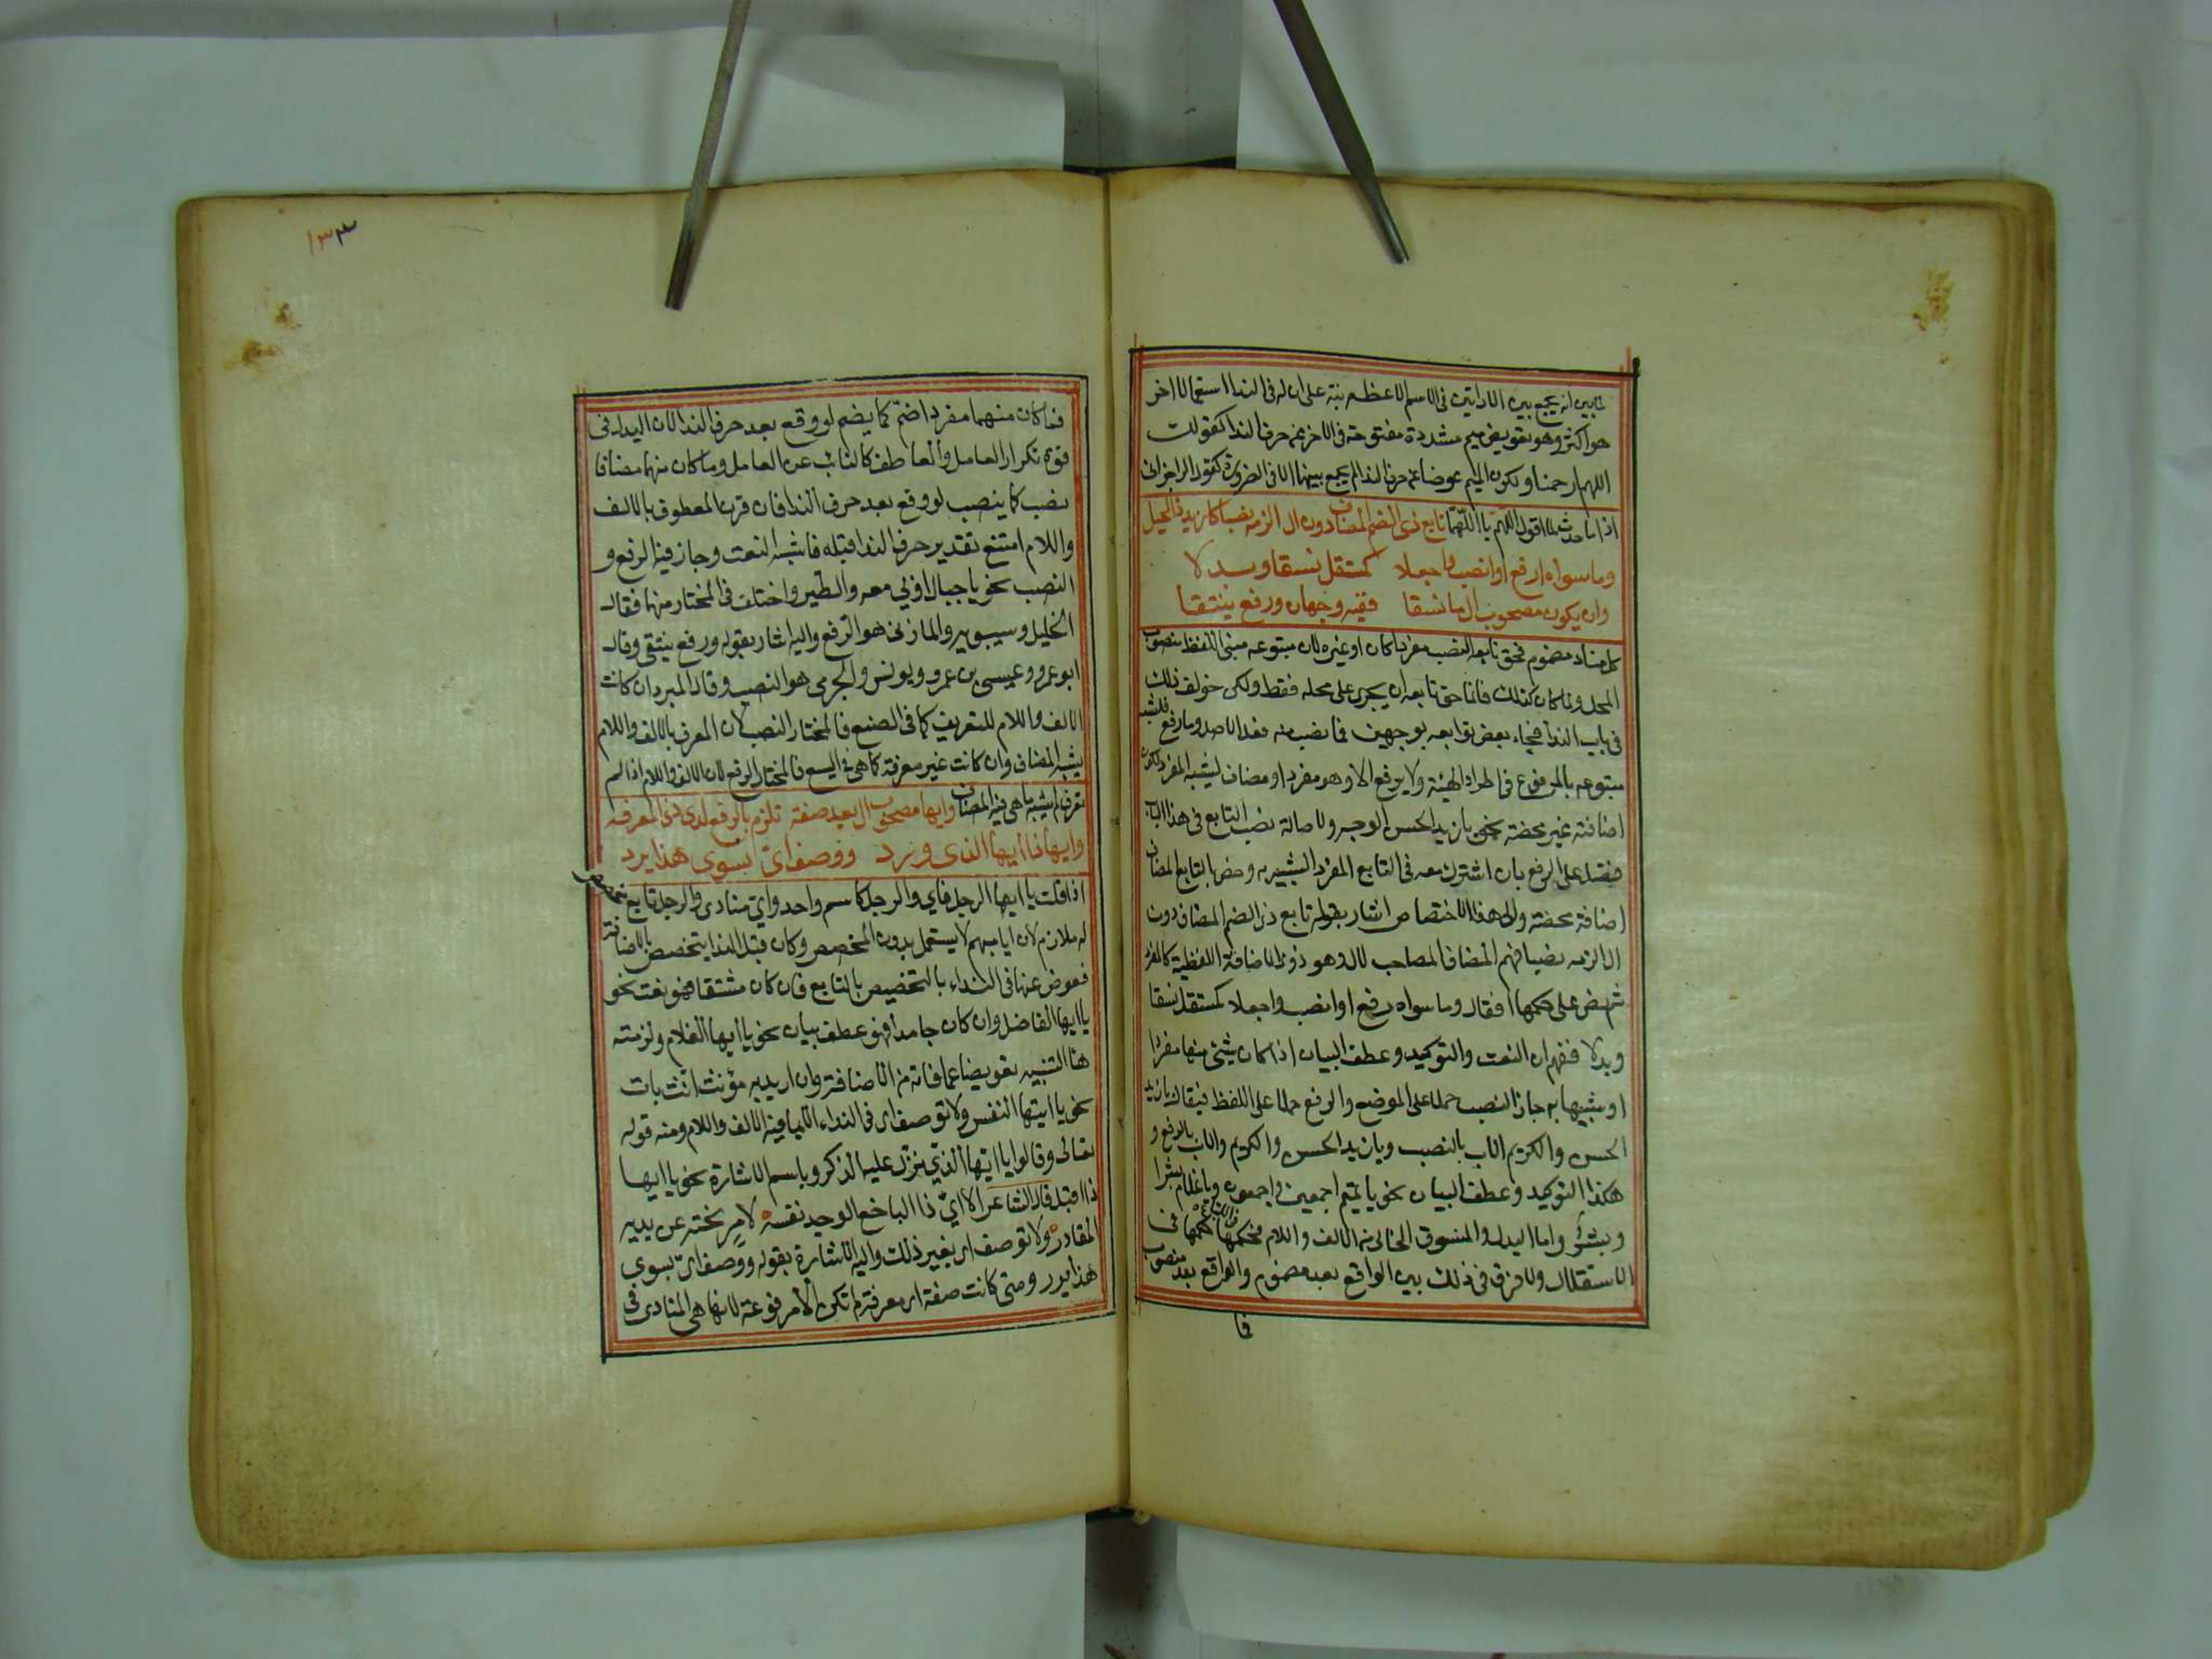 لما بين انه يجمع بين الاداتين فى الاسم الاعظم نبه على ان له فى الندا استعمالا اخر
هو اكثر وهو تعويض ميم مشددة مفتوحة فى الاخر عن حرف الندا كقولك
اللهم ارحمنا ولكون الميم عوضا عن حرف الندا لم يجمع بينهما الا فى الضرورة كقول الراجز انى
اذا ما حدث الما اقول اللهم يا اللهما تابع ذى الضم المضاف دون ال الزمه نصبا كازيد ذا الحيل
وما سواه ارفع او انصب واجعلا كمستقل نسقا وبدلا
وان يكون مصحوب ال ما نسقا ففيه وجهان ورفع ينتقا
كل مناد مضموم فحق تابعه النصب مفردا كان او غيره لان متبوعه مبنى اللفظ منصوب
المحل وما كان كذلك فانما حق تابعه ان يجرى على محله فقط ولكن خولف ذلك
فى باب الندا فجاء بعض توابعه بوجهين فما نصب منه فعلى الاصل وما رفع فلشبه
متبوعه بالمرفوع فى اطراد الهيئة ولا يرفع الا وهو مفرد او مضاف يشبه المفرد لكون
اضافته غير محضة نحو يا زيد الحسن الوجه ولاصالة نصب التابع فى هذا الباب
فضل على الرفع بان اشترك معه فى التابع المفرد الشبيه به وخص بالتابع المضاف
اضافة محضة والى هذا الاختصاص اشار بقوله تابع ذى الضم المضاف دون
ال الزمه نصبا فهم المضاف المصاحب لال وهو ذو الاضافة اللفظية كالمفرد
ثم نص على حكمهما فقال وما سواه رفع او انصب واجعلا كمستقل نسقا
وبدلا ففهم ان النعت والتوكيد وعطف البيان اذا كان شيئ منها مفردا
او شبيها به جاز النصب حملا على الموضع والرفع حملا على اللفظ فيقال يا زيد
الحسن والكريم الاب بالنصب ويا زيد الحسن والكريم والاب بالرفع و
هكذا التوكيد وعطف البيان نحو يا تميم اجمعين واجمعون ويا غلام بشرا
وبشرٌ واما البدل والمنسوق الخالى من الالف واللام فحكمهما حكمهما فى
الاستقلال ولا فرق فى ذلك بين الواقع بعد مضموم والواقع بعد منصوب
فما
١٣٣
فما كان منهما مفردا ضم كما يضم لو وقع بعد حرف الندا لان البدل فى
قوة تكرار العامل والعاطف كالنائب عن العامل وما كان منهما مضافا
نصب كما ينصب لو وقع بعد حرف الندا فان قرن المعطوف بالالف
واللام امتنع تقدير حرف الندا قبله فاشبه النعت وجاز فيه الرفع و
النصب نحو يا جبال اوبي معه والطير واختلف فى المختار منهما فقال
الخليل وسيبويه والمازنى هو الرفع واليه اشار بقوله ورفع ينتقى وقال
ابو عمرو وعيسى بن عمرو ويونس والجرمى هو النصب وقال المبرد ان كانت
الالف واللام للتعريف كما فى الصنع فالمختار النصب لان المعرف بالالف واللام
يشبه المضاف وان كانت غير معرفة كما هى فى اليسع فالمختار الرفع لان الالف واللام اذا لم
تعرف لم يشبه ما هى فيه المضاف وايها مصحوب ال بعد صفة تلزم بالرفع لدى ذى المعرفه
وايها ذا ايها الذى ورد ووصف اي بسوى هذا يرد
اذا قلت يا ايها الرجل فاي والرجل كاسم واحد واي منادى والرجل تابع مخصص
له ملازم لان ايا مبهم لا يستعمل بدون المخصص وكان قبل الندا يتخصص بالاضافة
فعوض عنها فى النداء بالتخصيص بالتابع فان كان مشتقا فهو نعت نحو
يا ايها الفاضل وان كان جامدا فهو عطف بيان نحو يا ايها الغلام ولزمته
ها التنبيه تعويضا عما فاته من الاضافة وان اريد به مؤنث انث بات
نحو يا ايتها النفس ولا توصف اى فى النداء الا بما فيه الالف واللام ومنه قوله
تعالى وقالوا يا ايها الذي نزل عليه الذكر وباسم الاشارة نحو يا ايها
ذا اقبل قال الشاعر الا ايّ ذا الباخع الوجد نفسه لامر نحته عن يديه
المقادر ولا توصف اى بغير ذلك واليه الاشارة بقوله ووصف اي بسوى
هذا يرد ومتى كانت صفة اى معرفة لم تكن الا مرفوعة لانها هى المنادى فى